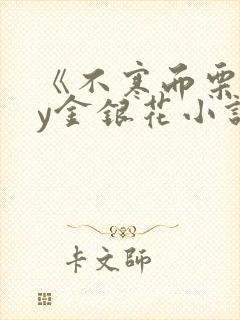 《不寒而栗
y金银花小说
卡文師